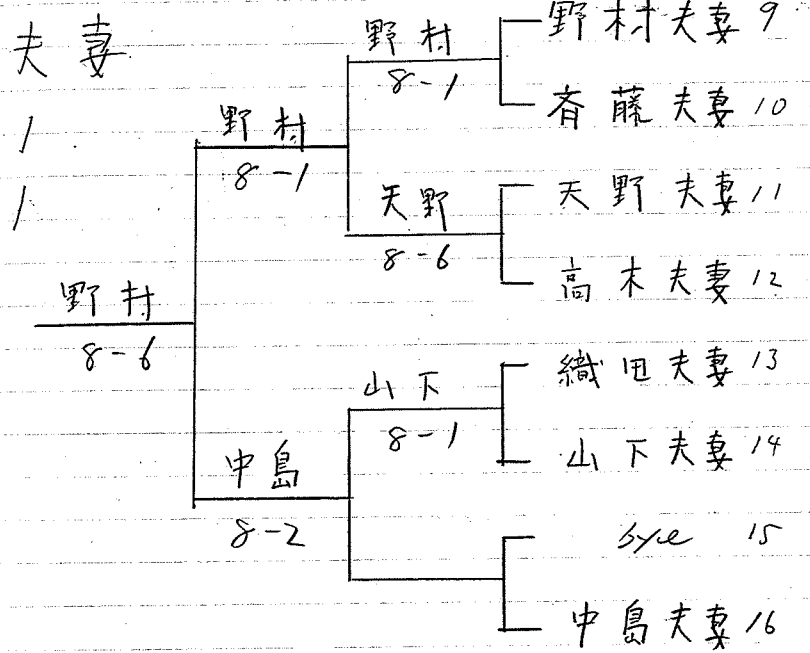 夫妻
1
1
野村
8-6
野村
8-1
中島
8-2
野村
8-1
天野
8-6
山下
8-1
野村夫妻 9
斉藤夫妻 10
天野夫妻 11
高木夫妻 12
織田夫妻 13
山下夫妻 14
bye 15
中島夫妻 16